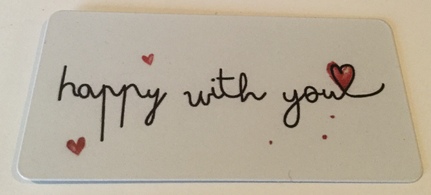 happy with you